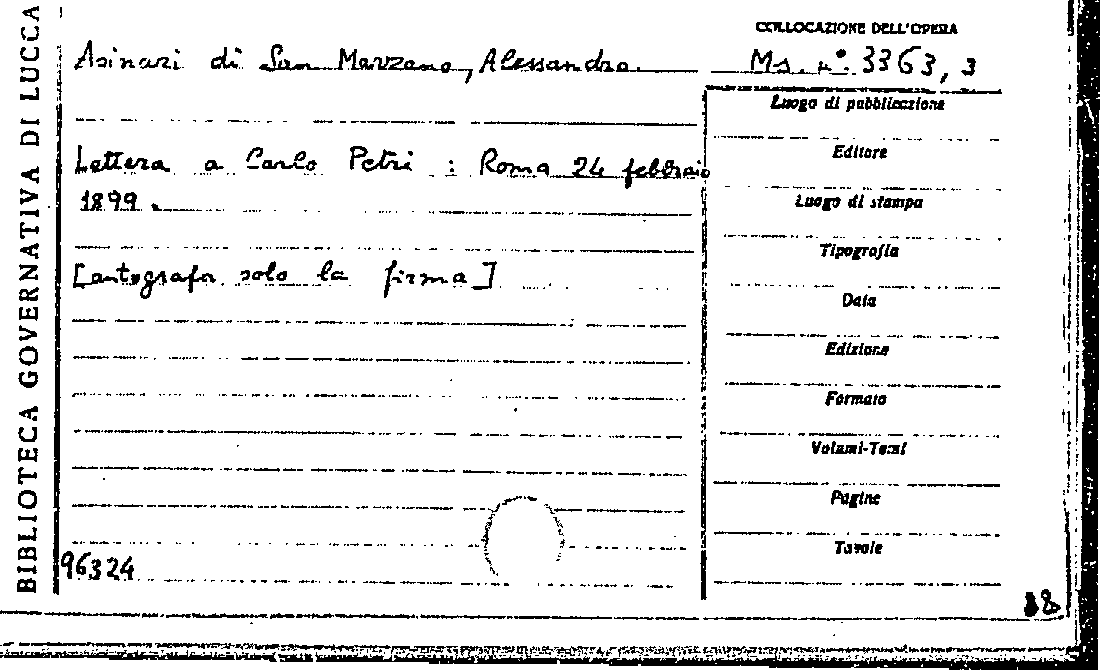 BIBLIOTECA GOVERNATIVA DI LUCCA
COLLOCAZIONE DELL'OPERA
Asinari di San Marzano, Alessandro.
Ms. n°. 3363, 3
Lettera a Carlo Petri : Roma 24 febbraio
1899.
[autografa solo la firma]
96324
Luogo di pubblicazione
Editore
Luogo di stampa
Tipografia
Data
Edizione
Formato
Volumi-Tomi
Pagine
Tavole